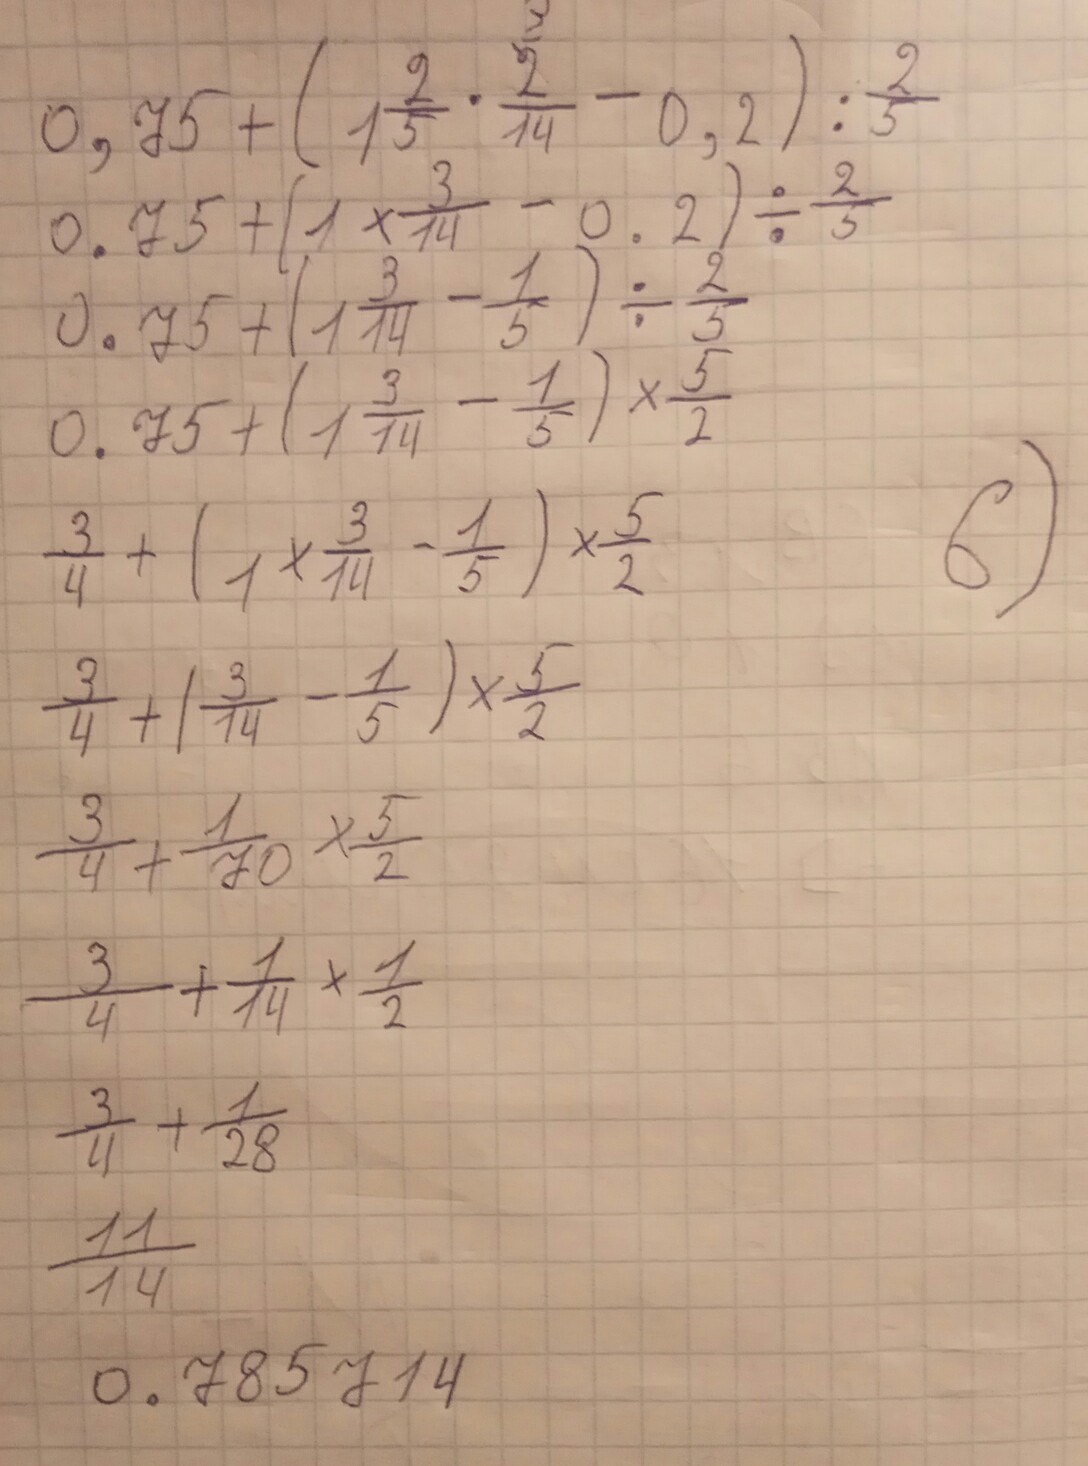 0,75+(1 2/5 · 2/14 - 0,2) : 2/5
0.75+(1 × 3/14 - 0.2) ÷ 2/5
0.75+(1 3/14 - 1/5) ÷ 2/5
0.75+(1 3/14 - 1/5) × 5/2
3/4 + (1 × 3/14 - 1/5) × 5/2
6)
3/4 + (3/14 - 1/5) × 5/2
3/4 + 1/70 × 5/2
3/4 + 1/14 × 1/2
3/4 + 1/28
11/14
0.785714